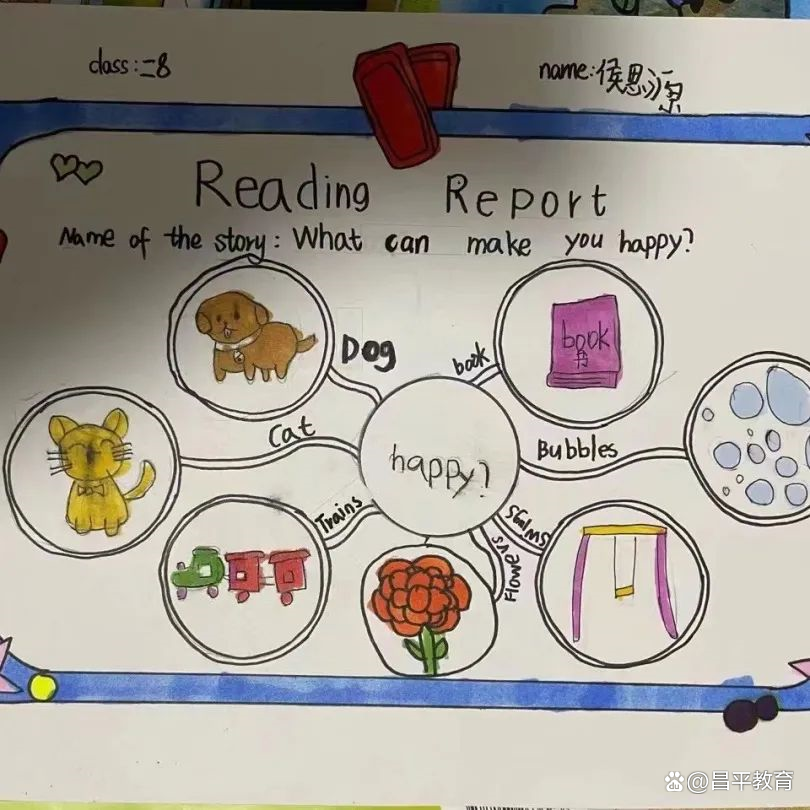 class:二8
name:侯思源
Reading Report
Name of the story: What can make you happy?
Dog
book
book
书
Cat
happy?
Bubbles
Trains
Swings
Flowers
@昌平教育